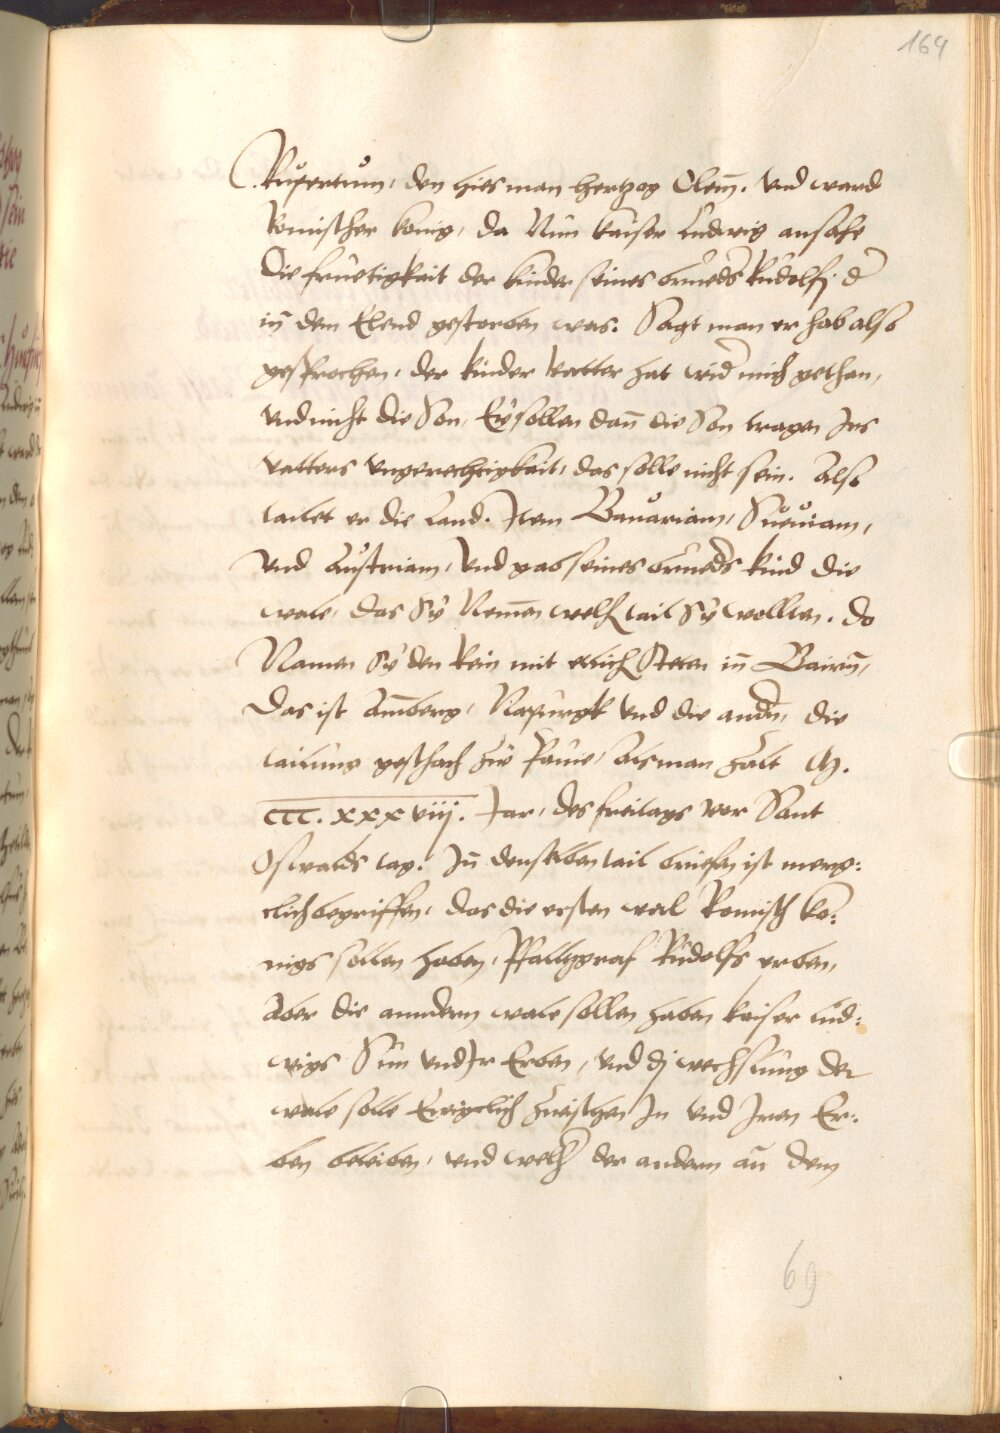 164
Rupertum, den hies man hertzog Clem̄. vnd ward
Romischer konig, da Nun kaiser Ludwig ansahe
Die fruetigkait der kinder seines bruedˢ Rudolfj dˢ
in̄ dem Elend gestorben was. Sagt man er hab also
gesprochen, der kinder vatter hat widˢ mich gethan,
vnd nicht die Son, Ew sollen dan̄ die Son tragen Jrs
vatters vngerechtigkait, das solle nicht sein. Also
tailet er die Land. Jtem Bauariam, Sueuiam,
vnd Austriam, vnd gab seines bruedˢs kind die
wale, das Sÿ Nemen welh tail Sÿ wollten. do
Namen Sÿ den Rein mit etlich Steten in̄ Bairn̄,
Das ist Am̄berg, Napurgk vnd die andn̄, die
tailung geschach zu Pauie, als man zalt M.
ccc. xxxviij. Jar, des freitags vor Sant
Oswalds tag. Jn̄ denselben tail briefen ist merg:
clich begriffen, das die ersten wal Romisch ko:
nigs sollen haben, Pfalltzgraf Rudolfs erben,
Aber die anndern wale sollen haben kaiser Lud:
wigs Sun vnd Jr Erben, vnd dj wechslung der
wale solle Ewigclich zwischen Jn vnd Jren Er:
ben beleiben, vnd welhˢ der andern an̄ dem
69